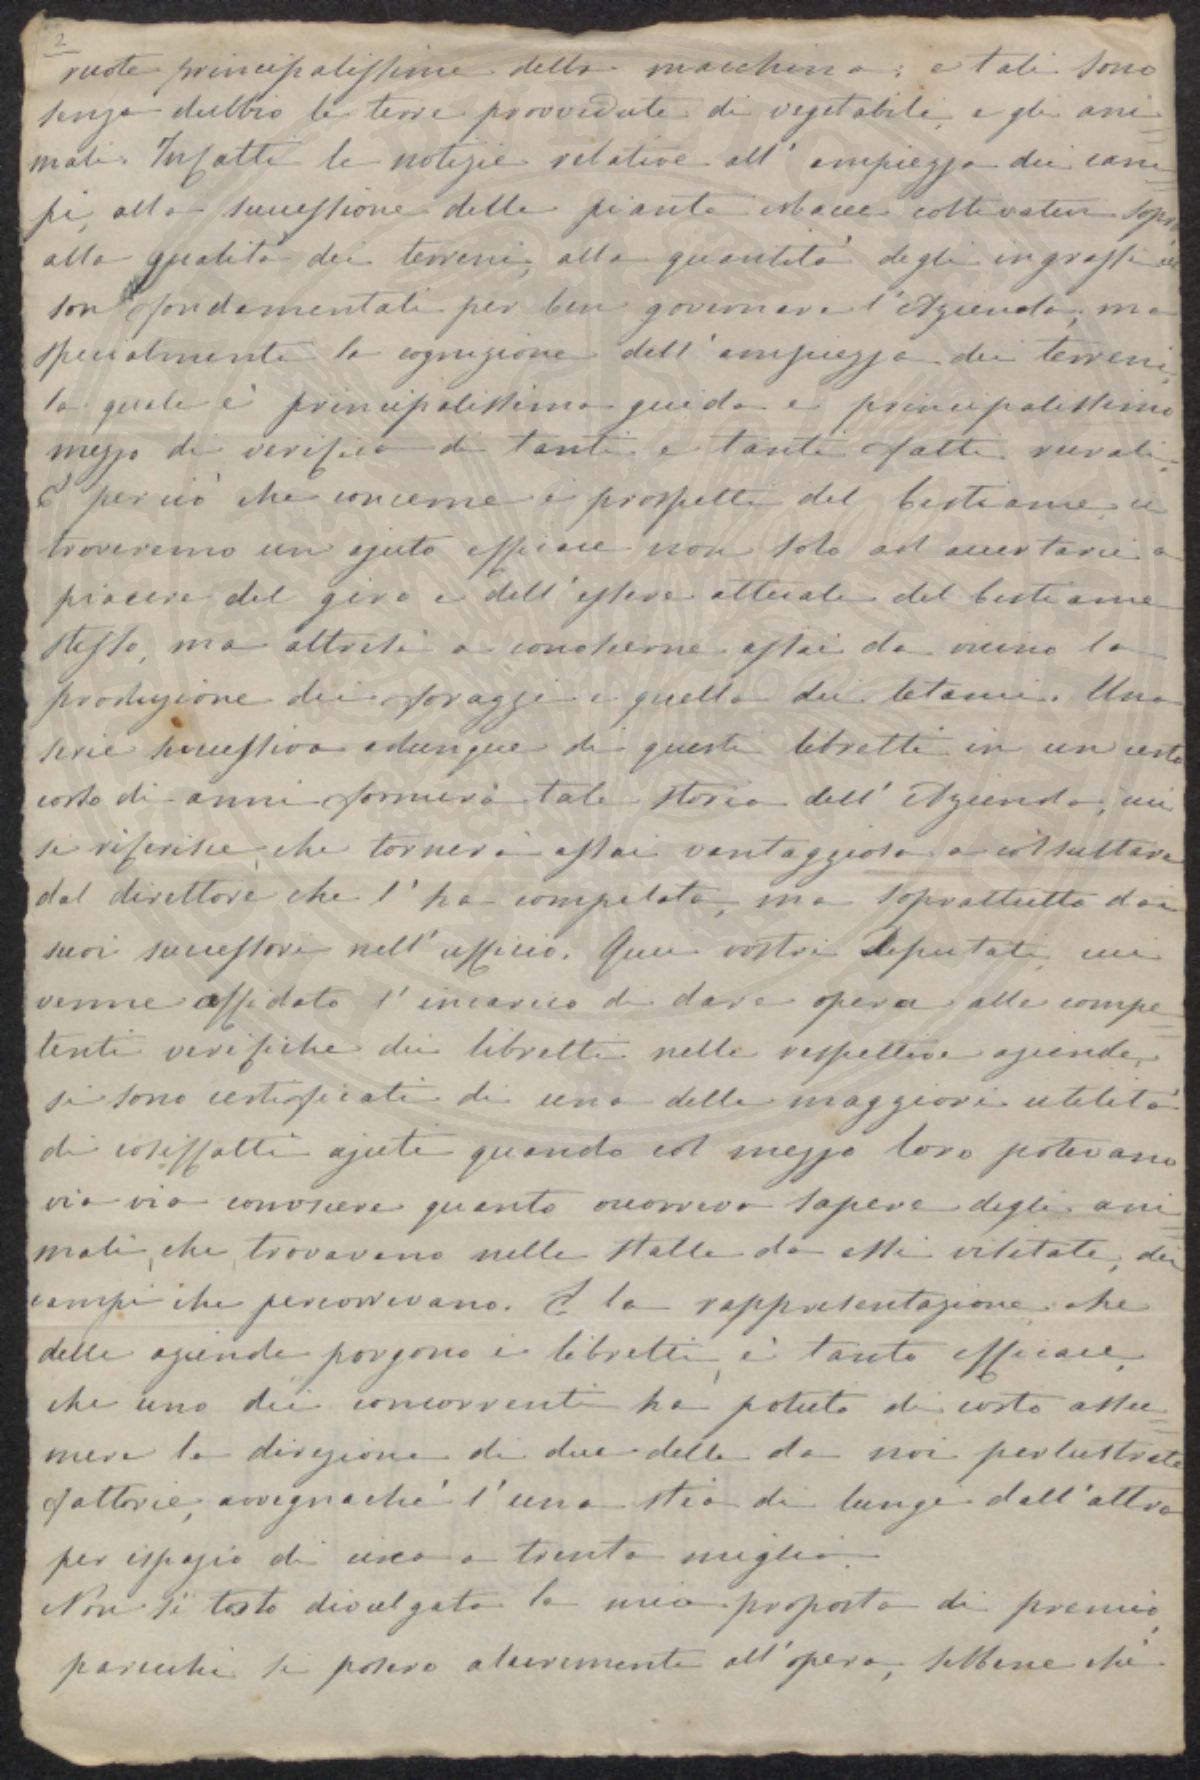 2
ruote principalissime della macchina; e tali sono
senza dubbio le terre provvedute di vegetabili, e gli ani=
mali. Infatti le notizie relative all'ampiezza dei cam=
pi, alla successione delle piante erbacee coltivatevi sopra
alla qualità dei terreni, alla quantità degli ingrassi
son fondamentali per ben governare l'Azienda; ma
specialmente la cognizione dell'ampiezza dei terreni,
la quale è principalissima guida e principalissimo
mezzo di verifica di tanti e tanti fatti rurali.
E per ciò che concerne i prospetti del bestiame, ci
troveremo un ajuto efficace non solo ad accertarci a
piacere del giro e dell'essere attuale del bestiame
stesso, ma altresì a conoscerne assai da vicino la
produzione dei foraggi e quella dei letami. Una
serie successiva adunque di questi libretti in un certo
corso di anni formerà tale storia dell'Azienda, cui
si riferisce, che tornerà assai vantaggiosa a consultare
dal direttore che l'ha compilata, ma soprattutto dai
suoi successori nell'ufficio. Quei vostri Deputati, cui
venne affidato l'incarico di dare opera alle compe=
tenti verifiche dei libretti nelle respettive aziende,
si sono certificati di una delle maggiori utilità
di cosiffatti ajuti quando col mezzo loro potevano
via via conoscere quanto occorreva sapere degli ani=
mali, che trovavano nelle stalle da essi visitate, dei
campi che percorrevano. E la rappresentazione che
delle aziende porgono i libretti, è tanto efficace,
che uno dei concorrenti ha potuto di costo assu=
mere la direzione di due delle da noi perlustrate
fattorie, avvegnachè l'una stia di lungi dall'altra
per ispazio di circa a trenta miglia.
Non sì tosto divulgata la mia proposta di premio,
parecchi si posero alacremente all'opera, sebbene chè